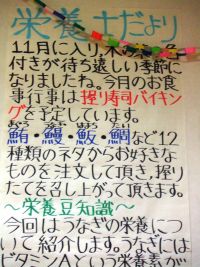 栄養士だより
11月に入り、木の
付きが待ち遠しい季節に
なりましたね。今月のお食
事行事は握り寿司バイキン
グを予定しています。
鮪・鰻・魬・鯛など12
種類のネタからお好きな
ものを注文して頂き、握り
たてを召し上がって頂きます。
～栄養豆知識～
今回はうなぎの栄養につ
いて紹介します。うなぎには
ビタミンAという栄養素が